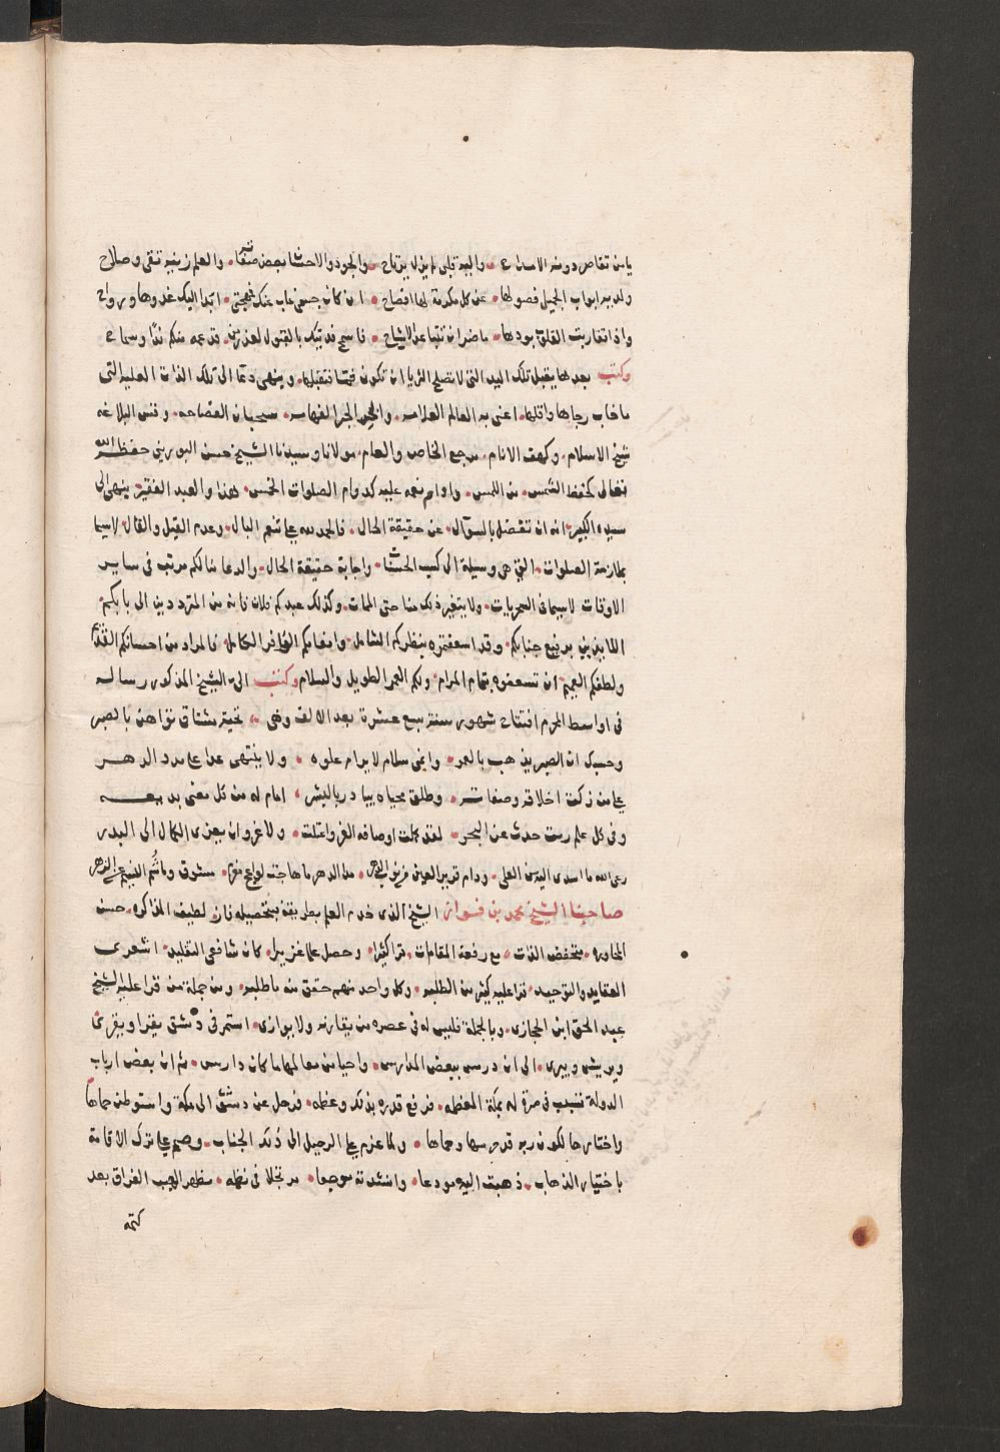 يا من تقاصر دونه الامداح • واليه قلبي لم يزل يرتاح • والجود والاحشا بعض صفاته • والعلم زينه تقى وصلاح
ولديه ابواب الجميل فصولها • عن كل مكرمة لها افصاح • ان كان جسمي غاب عنك فمهجتي • ابدا اليك غدوها ورواح
واذا تقاربت القلوب بودها • ما ضر ان تتباعد الاشباح • فاسمح فديتك بالقبول لعذر من • قد عمه منكم ندا وسماح
وكتب بعدها يقبل تلك اليد التي لا تصلح الثريا ان تكون فمّا فتقبلها • وينهي دعا الى تلك الذات العلية التي
ما خاب رجاها واملها • اعني به العالم العلامه • والبحر الحبر الفهامه • سحبان الفصاحه • وقس البلاغه
شيخ الاسلام • وكهف الانام • مرجع الخاص والعام • مولانا وسيدنا الشيخ حسن البوريني حفظه الله
تعالى كحفظ الشمس • من اللمس • وادام نعمه عليه كدوام الصلوات الخمس • هذا والعبد الفقير • ينهي الى
سيده الكبير • انه ان تفضل بالسوآل • عن حقيقة الحال • فالحمد لله على نعم البال • وعدم القيل والقال • لاسيما
بملازمة الصلوات • التي هي وسيلة الى كسب الحسنات • واجابة حقيقة الحال • والدعا منا لكم مرتب في ساير
الاوقات لاسيما في السحريات • ولا يتغير ذلك منا حتى الممات • وكذلك عبدكم فلان فانه من المترددين الى بابكم •
اللايذين برفيع جنابكم • وقد اسعفتموه بنظركم الشامل • وانعامكم الوافر الكامل • فالمراد من احسانكم القديم
ولطفكم العميم • ان تسعفوه بتمام المرام • ولكم العمر الطويل والسلام وكتب الى الشيخ المذكور رسالة
في اواسط المحرم افتتاح شهور سنة سبع عشرة بعد الالف وهي • تحية مشتاق تواهن بالصبر
وحسبك ان الصبر يذهب بالعمر • وانمى سلام لا يرام علوه • ولا ينتهي عدا على مدد الدهر
على من زكت اخلاقه وصفاته • وطلق محياه يبادر بالبشر • امام له من كل معنى بديعه
وفي كل علم ريت حدث عن البحر • لقد كملت اوصافه الغر واعتلت • ولا غرو ان يعزى الكمال الى البدر
رعى الله ما اسدى اليه من العلى • ودام قرير العين مدى الدهر ما هاجت لواعج مغرم • مشوق وما نم النسيم على الزهر
صاحبنا الشيخ محمد بن فواز الشيخ الذي خدم العلم بطريقة بتحصيله فاز • لطيف المذاكره • حسن
المحاوره • منخفض الذات • مع رفعة المقامات • قرا كثيرا • وحصل علما غزيرا • كان شافعي التقليد • اشعري
العقايد والتوحيد • قرا عليه كثير من الطلبه • وكل واحد منهم حقق منه ما طلبه • ومن جملة من قرا عليه الشيخ
عبد الحق ابن الحجازي • وبالجملة فليس له في عصره من يقاربه ولا يوازي • استمر في دمشق يقرا ويقري
ويريش ويبري • الى ان درس ببعض المدارس • واحيا من معالمها ما كان دارس • ثم ان بعض ارباب
الدولة تسبب في صرة له بمكة المعظمه • فرفع قدره بذلك وعظمه • فرحل عن دمشق الى مكة واستوطن حماها
واختارها لكون ربه قدسها وحماها • ولما عزم على الرحيل الى ذلك الجناب • وصمم على ترك الاقامة
باختيار الذهاب • ذهبت اليه مودعا • وانشدته موجعا • مرتجلا في نظمه • مظهر الهيب الفراق بعد
كتمه